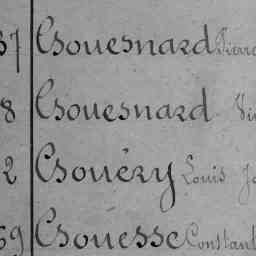 37 Gouesnard Pierre
8 Gouesnard
2 Gouéry Louis Jo
59 Gouesse Constant